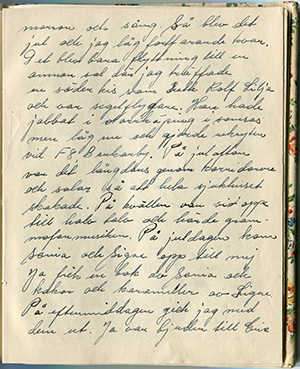 morron och sång. Så blev det
jul och jag låg fortfarande kvar.
Det blev bara flyttning till en
annan sal där jag träffade
en söder kis som hette Rolf Lilja
och var segelflygare. Han hade
jobbet i
men låg nu och gjorde rekryten
vid F8 Barkarby. På julafton
var det långdans genom korridorerna
och salar så att hela sjukhuset
skakade. På kvällen var vi oppe
till halv tolv och hörde gram-
mofonmusiken. På juldagen kom
Sonia och Signe opp till mej
Ja fick en bok av Sonia och
kakor och karameller av Signe.
På eftermiddagen gick jag med
dem ut. Ja var bjuden till